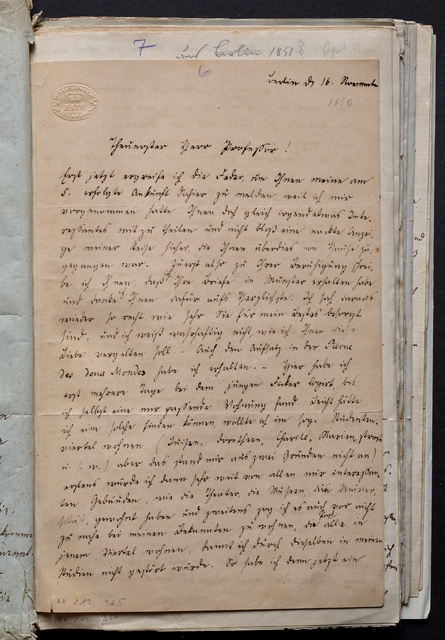 7
aus Berlin 1851
6
BATH
Berlin d 16. November
1850
Theuerster Herr Professor!
Erst jetzt ergreife ich die Feder, um Ihnen meine am
5. erfolgte Ankunft dahier zu melden weil ich mir
vorgenommen hatte Ihnen doch gleich irgendetwas Inte-
ressantes mit zu theilen und nicht bloß eine nackte Anzei-
ge meiner Reise hieher, die Ihnen überdies von Hause zu-
gegangen war. Zuerst also zu Ihrer Beruhigung schrei-
be ich Ihnen, daß ich Ihre Briefe in Münster erhalten habe
und danke Ihnen dafür aufs Herzlichste. Ich sah daraus
wieder so recht wie sehr Sie für mein Bestes besorgt
sind, und ich weiß wahrhaftig nicht wie ich Ihnen diese
Liebe vergelten soll. Auch den Aufsatz in der Revue
des deux Mondes habe ich erhalten. – Hier habe ich
erst mehrere Tage bei dem jungen logirt bis
ich selbst eine mir passende Wohnung fand. Leicht hätte
ich eine solche finden können wollte ich im sog. Studenten-
viertel wohnen (Luisen, Dorotheen, Charlo, Marien Straße
u. s. w.) aber das stand mir aus zwei Gründen nicht an;
erstens würde ich dann sehr weit von allen mir interessan-
ten Gebäuden, wie die Theater, die Museen, die Univer-
sität, gewohnt haben und zweitens zog ich es auch vor nicht
zu nahe bei meinen Bekannten zu wohnen, die fast alle in
jenem Viertel wohnen, damit ich durch dieselben in meinen
Studien nicht gestört würde. So habe ich denn jetzt ein